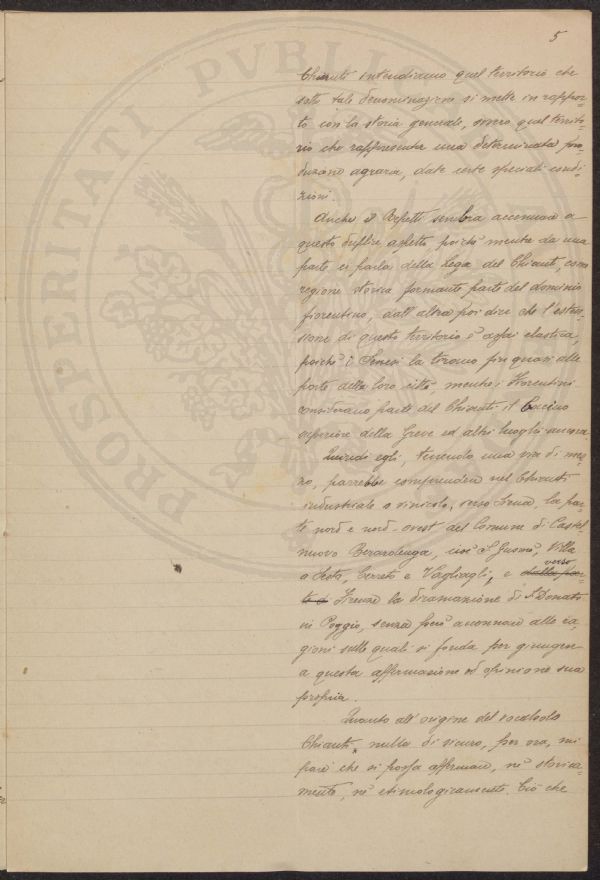 5
Chianti intendiamo quel territorio che
sotto tale denominazione si mette in rappor-
to con la storia generale, ovvero quel territo-
rio che rappresenta una determinata pro-
duzione agraria, date certe speciali condi-
zioni.
Anche il Repetti sembra accennare a
questo duplice aspetto poichè mentre da una
parte ci parla della Lega del Chianti, come
regione storica formante parte del dominio
fiorentino, dall'altra poi dice che l'esten-
sione di questo territorio è assai elastica,
poichè i Senesi la tirano fin quasi alle
porte della loro città, mentre i Fiorentini
considerano parte del Chianti il bacino
superiore della Greve ed altri luoghi ancora.
Quindi egli, tenendo una via di mez-
zo, parrebbe comprendere nel Chianti
industriale o vinicolo, verso Siena, la par-
te nord e nord-ovest del Comune di Castel-
nuovo Berardenga, cioè S. Gusmè, Villa
a Sesta, Cerreto e Vagliagli, e dalla par- verso
te di Firenze la diramazione di S. Donato
in Poggio, senza però accennare alle ca-
gioni sulle quali si fonda per giungere
a questa affermazione ed opinione sua
propria.
Quanto all'origine del vocabolo
Chianti, nulla di sicuro, per ora, mi
pare che si possa affermare, nè storica-
mente, nè etimologicamente. Ciò che
PROSPERITATI PUBLICAE